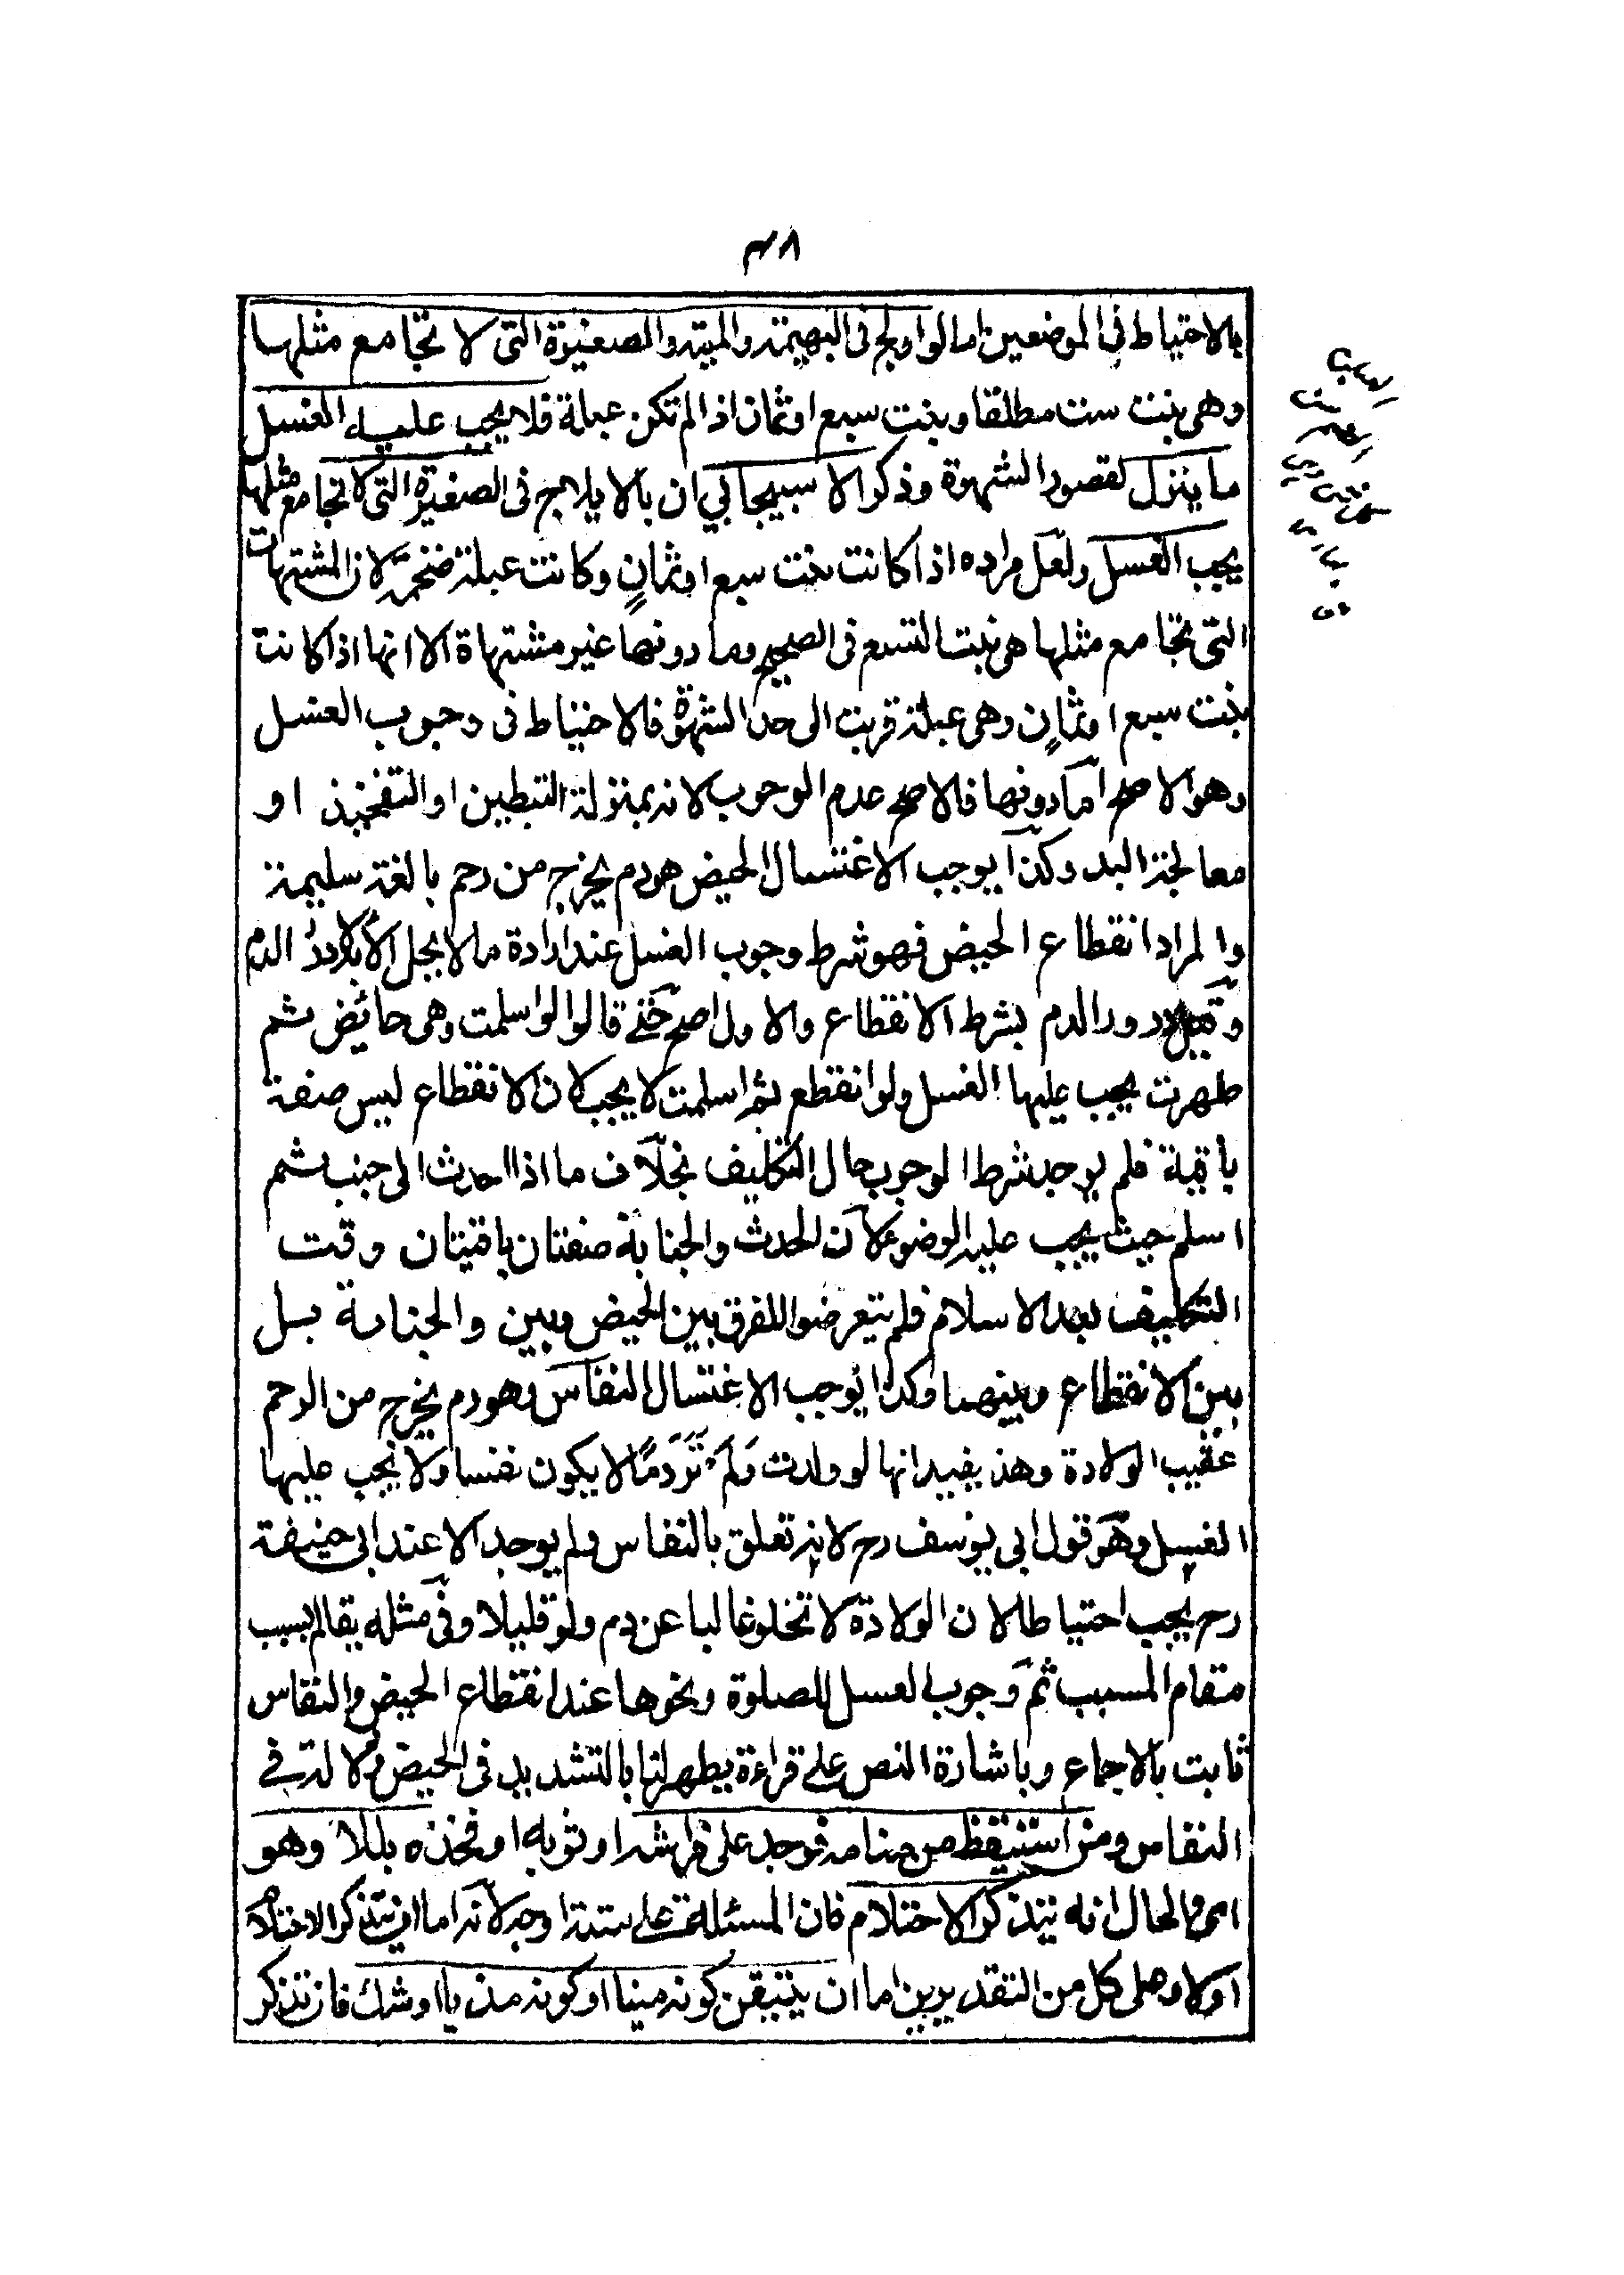 ٣٨
بالاحتياط فى الموضعين اما لو اولج فى البهيمة والميتة والصغيرة التى لا تجامع مثلها
وهى بنت ست مطلقا وبنت سبع او ثمان اذا لم تكن عبلة فلا يجب عليه الغسل
ما ينزل لقصور الشهوة وذكر الاسبيجابي ان بالايلاج فى الصغيرة التى لا تجامع مثلها
يجب الغسل ولعل مراده اذا كانت بنت سبع او ثمان وكانت عبلة ضخمة لان المشتهات
التى تجامع مثلها هى بنت التسع فى الصحيح وما دونها غير مشتهاة الا انها اذا كانت
بنت سبع او ثمان وهى عبلة قربت الى حد الشهوة فالاحتياط فى وجوب الغسل
وهو الاصح اما دونها فالاصح عدم الوجوب لانه بمنزلة التبطين او التفخيذ او
معالجة اليد وكذا يوجب الاغتسال الحيض هو دم يخرج من رحم بالغة سليمة
والمراد انقطاع الحيض فهو شرط وجوب الغسل عند ارادة ما لا يحل الا به لا درور الدم
وقيل درور الدم بشرط الانقطاع والاول اصح حتى قالوا لو اسلمت وهى حائض ثم
طهرت يجب عليها الغسل ولو انقطع ثم اسلمت لا يجب لان الانقطاع ليس صفة
باقية فلم يوجد شرط الوجوب حال التكليف بخلاف ما اذا احدث الى جنب ثم
اسلم حيث يجب عليه الوضوء لان الحدث والجنابة صفتان باقيتان وقت
التكليف بعد الاسلام فلم يتعرضوا للفرق بين الحيض وبين والجنابة بل
بين الانقطاع وبينهما وكذا يوجب الاغتسال النفاس وهو دم يخرج من الرحم
عقيب الولادة وهذ يفيد انها لو ولدت ولم تر دما لا يكون نفسا ولا يجب عليها
الغسل وهو قول ابى يوسف رح لانه تعلق بالنفاس ولم يوجد الا عند ابى حنيفة
رح يجب احتياطا لان الولادة لا تخلو غالبا عن دم ولو قليلا وفى مثله يقام السبب
مقام المسبب ثم وجوب الغسل للصلوة ونحوها عند انقطاع الحيض والنفاس
ثابت بالاجماع وباشارة النص على قراءة يطهرن بالتشديد فى الحيض ودلالته فى
النفاس ومن استيقظ من منامه فوجد على فراشه او ثوبه او فخذه بللا وهو
اى والحال انه يتذكر الاحتلام فان المسئلة على ستة اوجه لانه اما ان يتذكر الاحتلام
اولا وعلى كل من التقديرين اما ان يتيقن كونه منيا او كونه مذيا او شك فان تذكر